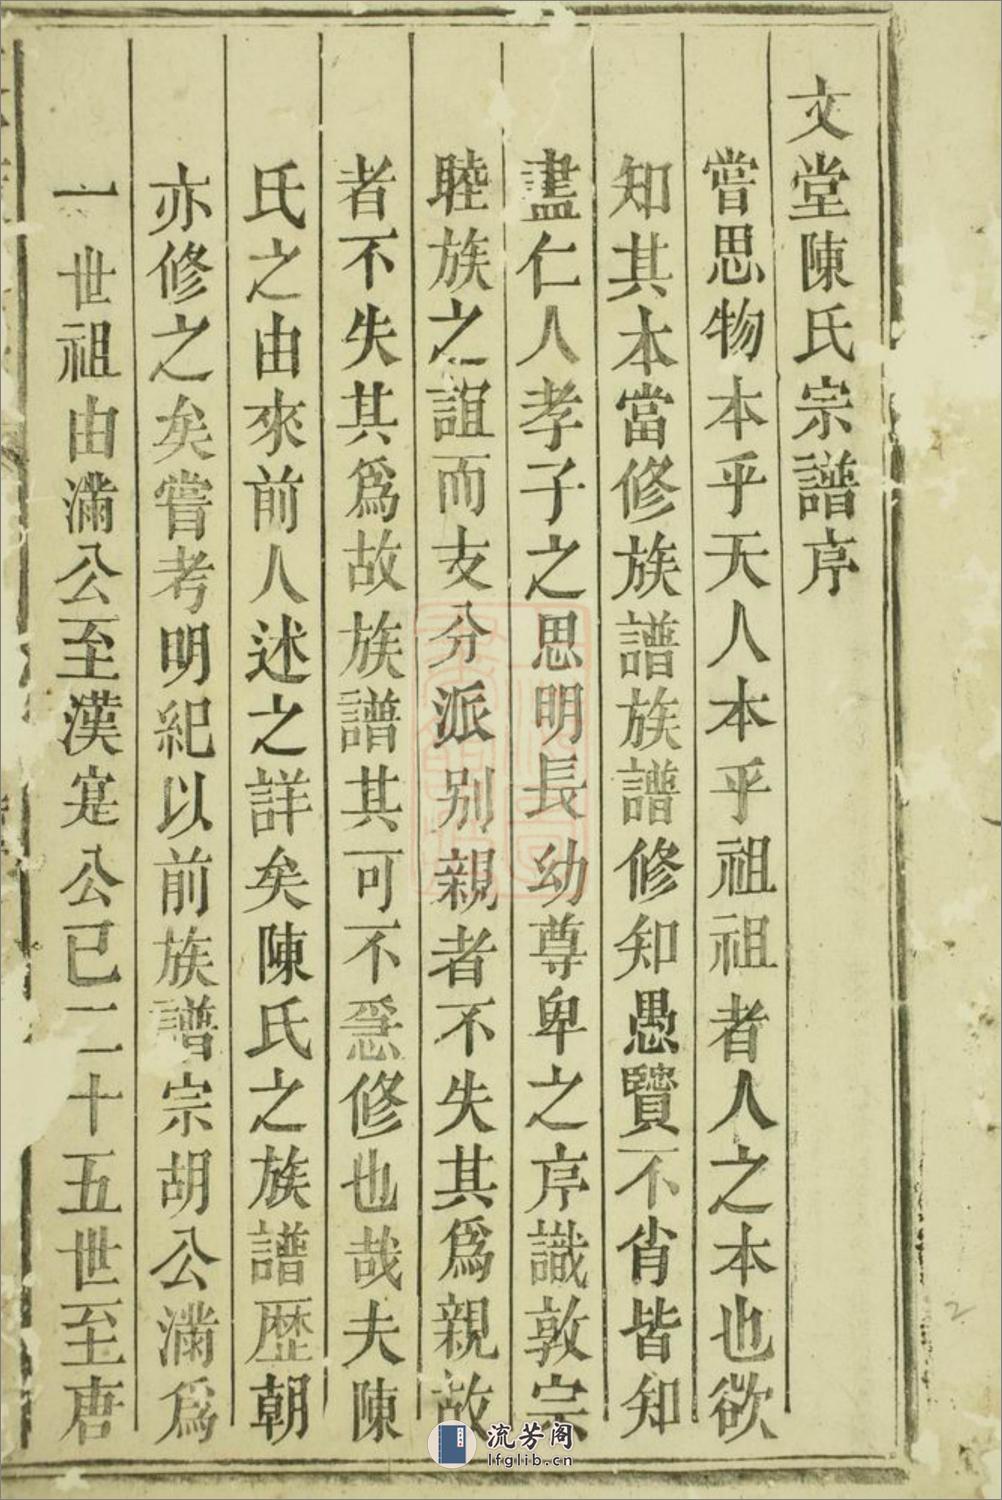 文堂陳氏宗譜序
嘗思物本乎天人本乎祖祖者人之本也欲
知其本當修族譜族譜修知愚賢不肖皆知
盡仁人孝子之思明長幼尊卑之序識敦宗
睦族之誼而支分派别親者不失其爲親故
者不失其爲故族譜其可不急修也哉夫陳
氏之由來前人述之詳矣陳氏之族譜歷朝
亦修之矣嘗考明紀以前族譜宗胡公滿爲
一世祖由滿公至漢寔公已二十五世至唐
流芳阁
lfglib.cn